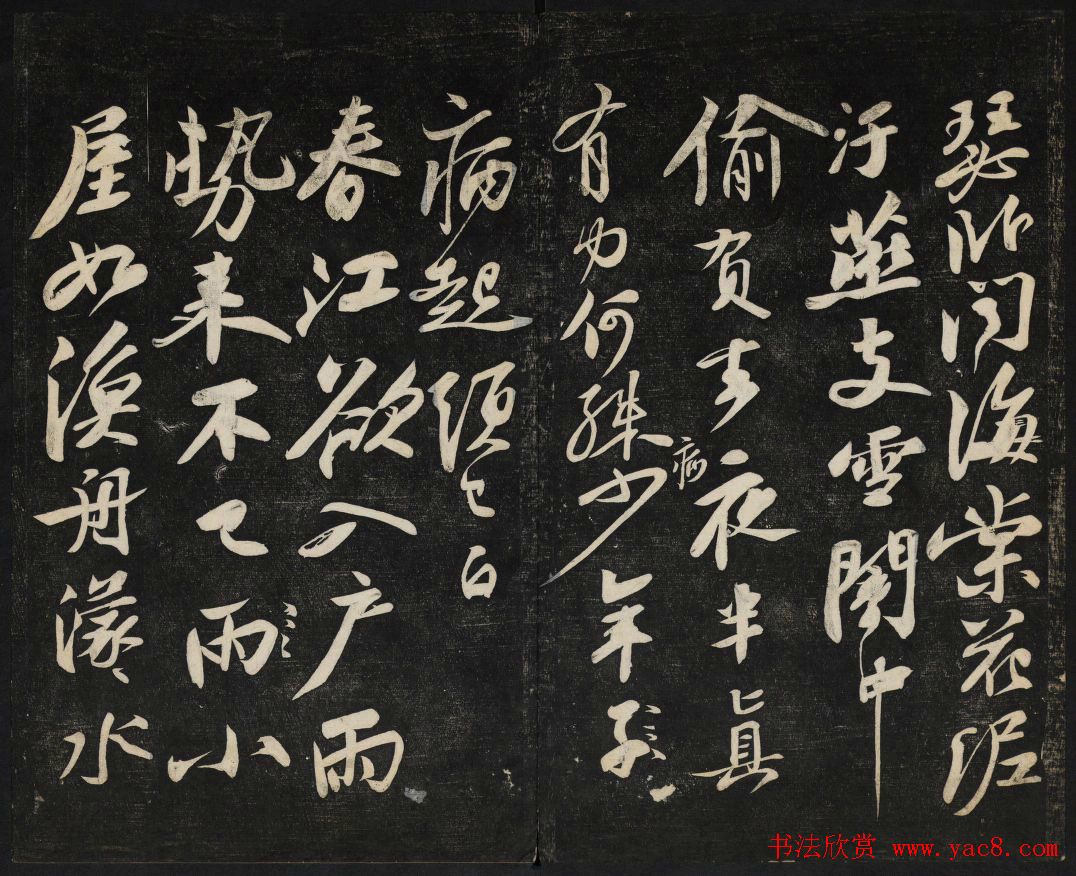 瑟臥聞海棠花泥
汙燕支雪闇中
偷負去夜半真
有力何殊少年子
病
病起須已白
春江欲入戶雨
勢來不已雨小
屋如漁舟濛々水
书法欣赏 www.yac8.com